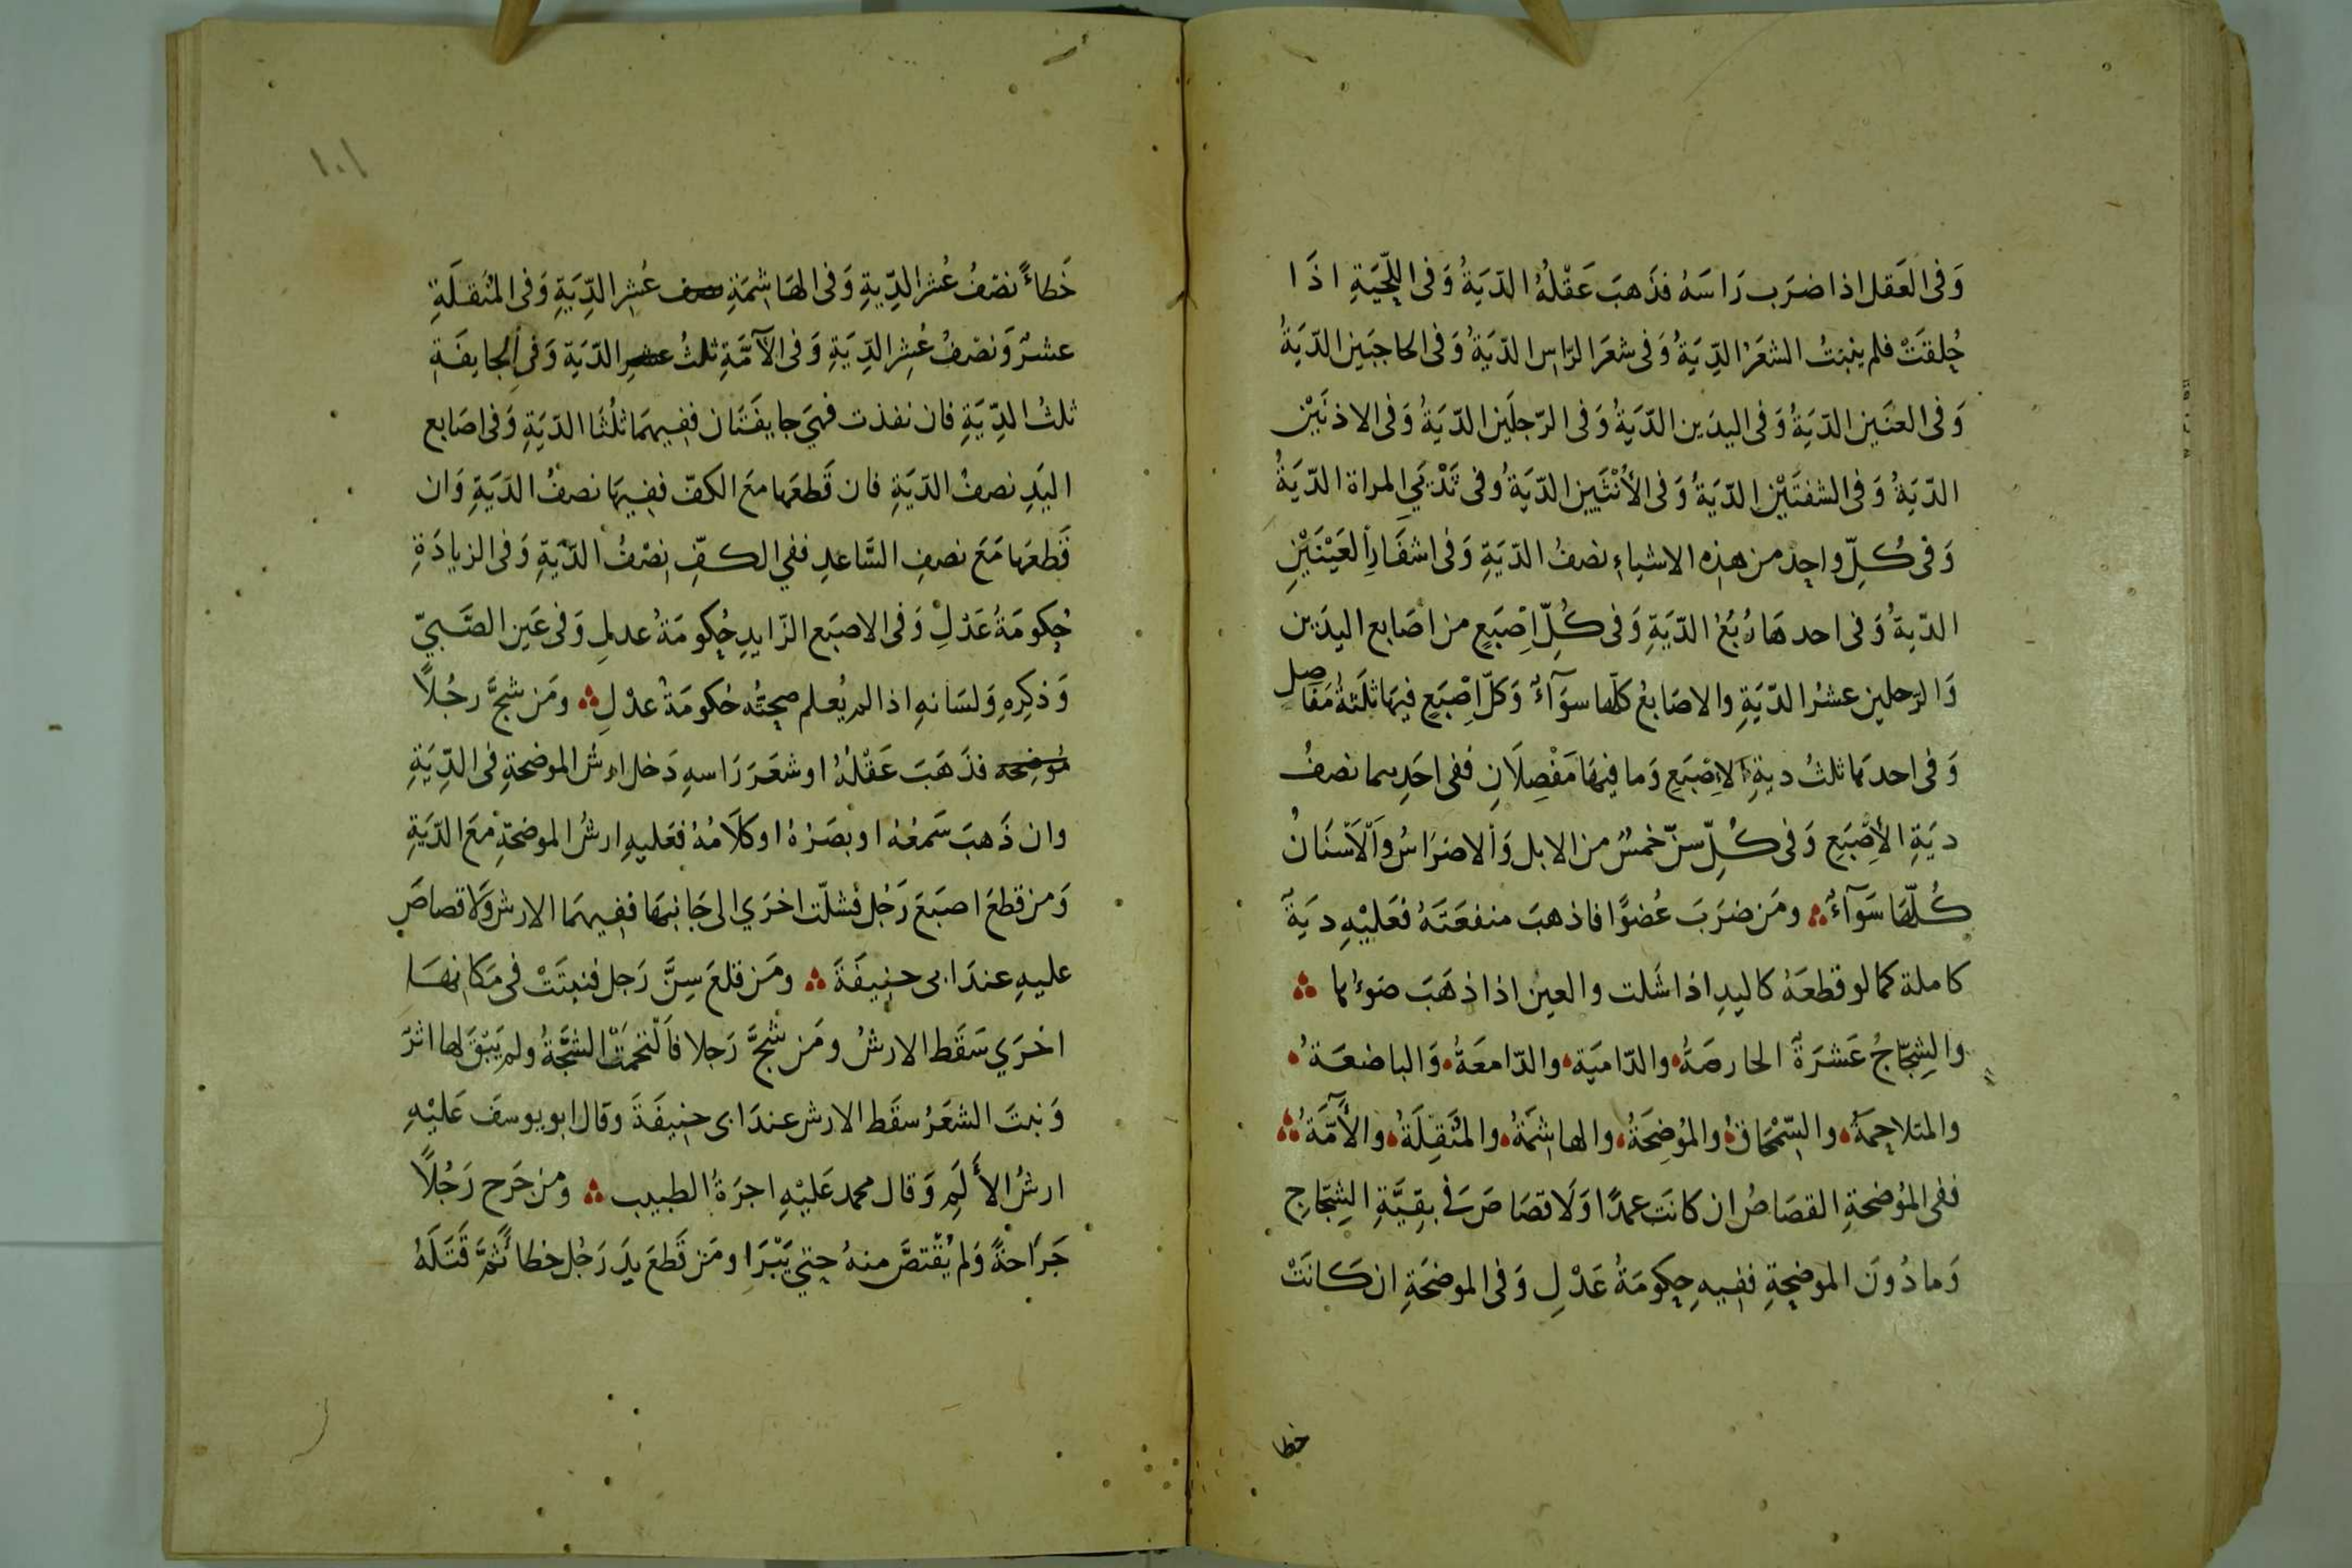 وَفى العَقل اذا ضرَب رَاسَهُ فذَهبَ عَقْلُهُ الدّيَةُ وَفى اللّحْيَةِ اذَا
حُلِقَتْ فلم ينبُت الشعَرُ الدِّيَةُ وَفى شعَر الرّاسِ الدّيَةُ وَفى الحاجبَين الدّيَةُ
وَفى العنَين الدّيَةُ وَفى اليدَين الدّيَةُ وَفى الرّجلَين الدّيَةُ وَفى الاذنَيْن
الدّيَةُ وَفى الشفتَيْن الدّيَةُ وَفى الأُنْثَيين الدّيَةُ وفى ثَدْيَيِ المراة الدّيَةُ
وَفى كُلِّ واحِد من هذِه الاشياءِ نصفُ الدّيَةِ وَفى اشفَارِ العَيْنَيْنِ
الدّيةُ وَفى احدهَا رُبُعُ الدّيَةِ وَفى كُلِّ اِصْبَعٍ من اصَابع اليدَين
وَالرّجلين عشرُ الدّيَةِ والاصَابعُ كلّها سوَآءٌ وَكلّ اِصْبَعٍ فيهَا ثلَثةُ مَفَاصِلٍ
وَفى احدهَا ثلثُ ديةِ الاِصْبَعِ وَما فيهَا مَفْصِلَانِ ففى احَدِهما نصفُ
ديَةِ الأِصْبَعِ وَفى كُلِّ سنّ خمسٌ من الابل وَالاضرَاسُ والَاسْنَانُ
كُلّهَا سَوَآءٌ ومَن ضرَبَ عُضوًا فاذهبَ منفعَتَهُ فعَليْهِ ديَةٌ
كاملة كما لو قطعَهُ كاليدِ اذا شَلت والعين اذا ذهَبَ ضوءُها
والشِجّاجُ عَشرَةٌ الحارصَةُ والدّاميَة والدّامعَةُ وَالباضعَة
والمتلاحِمَةُ والسِّمْحَاقُ والمُوْضِحَةُ والهاشمَةُ والمُنْقِلَةُ والأٓمَّةُ
ففى المُوْضحةِ القصَاصُ ان كانَت عمدًا وَلَا قصَاصَ فى بقِيَّةِ الشِجَاجِ
وَما دُونَ الموضحةِ ففيهِ حكومَةُ عَدْلِ وَفى الموضحَةِ ان كَانَتْ
خطا
١٠١
خَطاءً نصْفُ عُشر الدِّيةِ وَفى الهَاشمَةِ نصف عُشِر الدِّيَةِ وَفى المُنقلَةِ
عشرٌ وَنصْفُ عُشِر الدِّيَةِ وَفى الآمَّةِ ثلثُ عشر الدّيَة وَفى الجايفَةِ
ثلثُ الدِّيَةِ فان نفذت فهيَ جايفَتَان ففيهمَا ثلُثَا الدّيَةِ وَفى اصَابع
اليَدِ نصفُ الدّيَةِ فان قَطعَها معَ الكفّ ففيهَا نصفُ الدَيَةِ وَان
قَطعَهَا مَعَ نصفِ السَّاعدِ ففي الكفِّ نِصْفُ الدّيَةِ وَفى الزيادَةِ
حُكومَةُ عَدْلِ وَفى الاصبَع الزّايدِ حُكومَةُ عدلِ وَفى عَينِ الصَّبيّ
وَذكِرِهِ وَلسَانهِ اذا لم يُعلم صِحتُه حُكومَةُ عدْلِ ومَن شجَّ رجُلاً
مُوضِحَه فذَهَبَ عَقْلهُ او شعَرَ رَاسهِ دَخل ارشُ الموضحةِ فى الدِّيَةِ
وان ذَهبَ سَمعُهُ او بصَرُهُ او كلَامُهُ فعَليهِ ارشُ الموضحَةِ معَ الدّيَةِ
وَمن قطعَ اصبَعَ رَجُل فشلّت اخرَي الى جَانبهَا ففيهمَا الارش وَلَا قصاصَ
عليهِ عندَ ابى حنيفَةَ ومَن قلعَ سِنَّ رَجل فنبتَتْ فى مَكانهَا
اخرَي سَقَط الارشُ ومَن شجَّ رَجلا فالْتحمَتْ الشجَّةُ ولم يَبْقَ لها اثرٌ
وَنبتَ الشعَرُ سقَط الارش عندَ ابى حنيفَةَ وقال ابو يوسفَ عَليْهِ
ارشُ الأَلَمِ وَقال محمد عَليْهِ اجرَةُ الطبيب ومن جَرح رَجُلاً
جَرَاحَةً وَلم يُقْتصَّ منهُ حتي يَبْرَا ومَن قَطعَ يدَ رَجُل خطاءً ثمَّ قَتَلَهُ